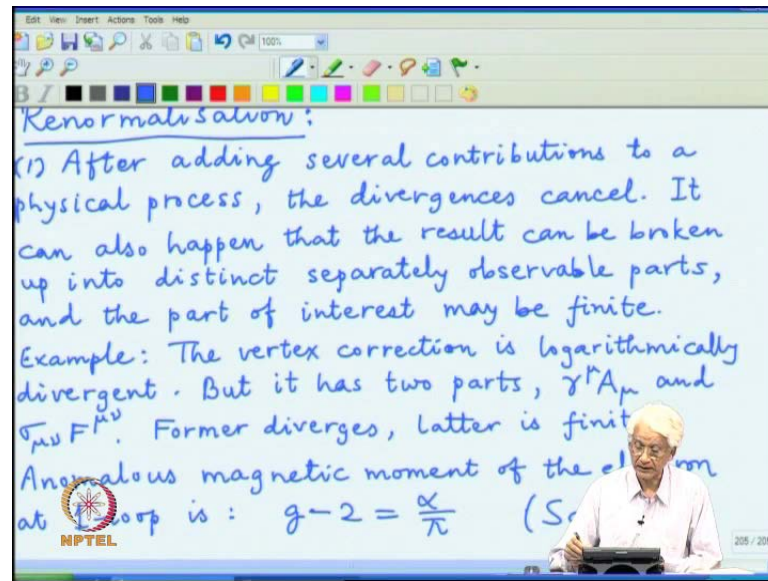 Edit View Insert Actions Tools Help
100%
B I
Renormalisation:
(1) After adding several contributions to a
physical process, the divergences cancel. It
can also happen that the result can be broken
up into distinct separately observable parts,
and the part of interest may be finite.
Example: The vertex correction is logarithmically
divergent. But it has two parts, γ^μ A_μ and
σ_μν F^μν. Former diverges, latter is
Anomalous magnetic moment of the
at 1-loop is: g-2 = α/π
NPTEL
205 / 205